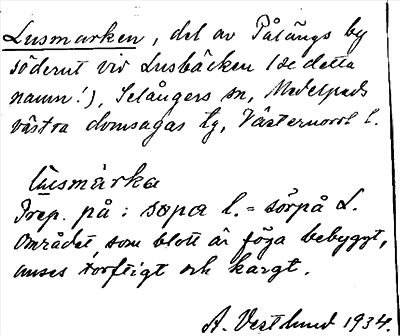 Lusmarken, del av Påläng by
söderut vid Lusbäcken (se detta
namn!), Selångers sn, Medelpads
västra domsagas tg, Västernorrl l.
Lusmarka
Prep. på: sopa l. = sörpå L.
Området som blott är föga bebyggt,
anses torftigt och kargt.
A. Vestlund 1934.